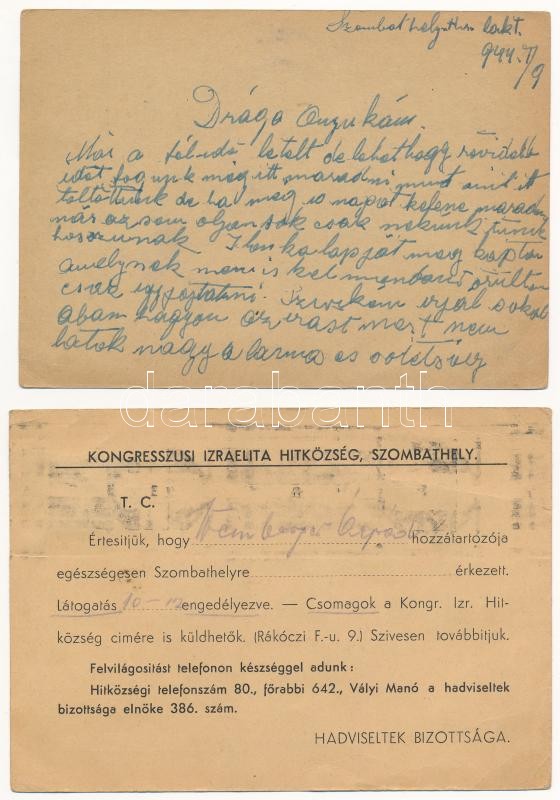 Szombathely
944. 7/9
Drága Anyukám.
Már a félidő letelt de lehet hogy rövidebb
időt fogunk még itt maradni mint amit itt
töltöttünk de ha még 10 napot kelene maradni
már az sem olyan sok csak nekünk tünik
hosszunak. Ilonka lapját meg kaptam
amelynek
csak Szivekem irjál sokat
abam hagyom az irast mert nem
latok nagy a larma es sötétség
darabanth
KONGRESSZUSI IZRAELITA HITKÖZSÉG, SZOMBATHELY.
T. C.
Értesitjük, hogy Árpád hozzátartozója
egészségesen Szombathelyre érkezett.
Látogatás 10-12 engedélyezve. — Csomagok a Kongr. Izr. Hit-
község cimére is küldhetők. (Rákóczi F.-u. 9.) Szivesen továbbitjuk.
Felvilágositást telefonon készséggel adunk:
Hitközségi telefonszám 80., főrabbi 642., Vályi Manó a hadviseltek
bizottsága elnöke 386. szám.
HADVISELTEK BIZOTTSÁGA.